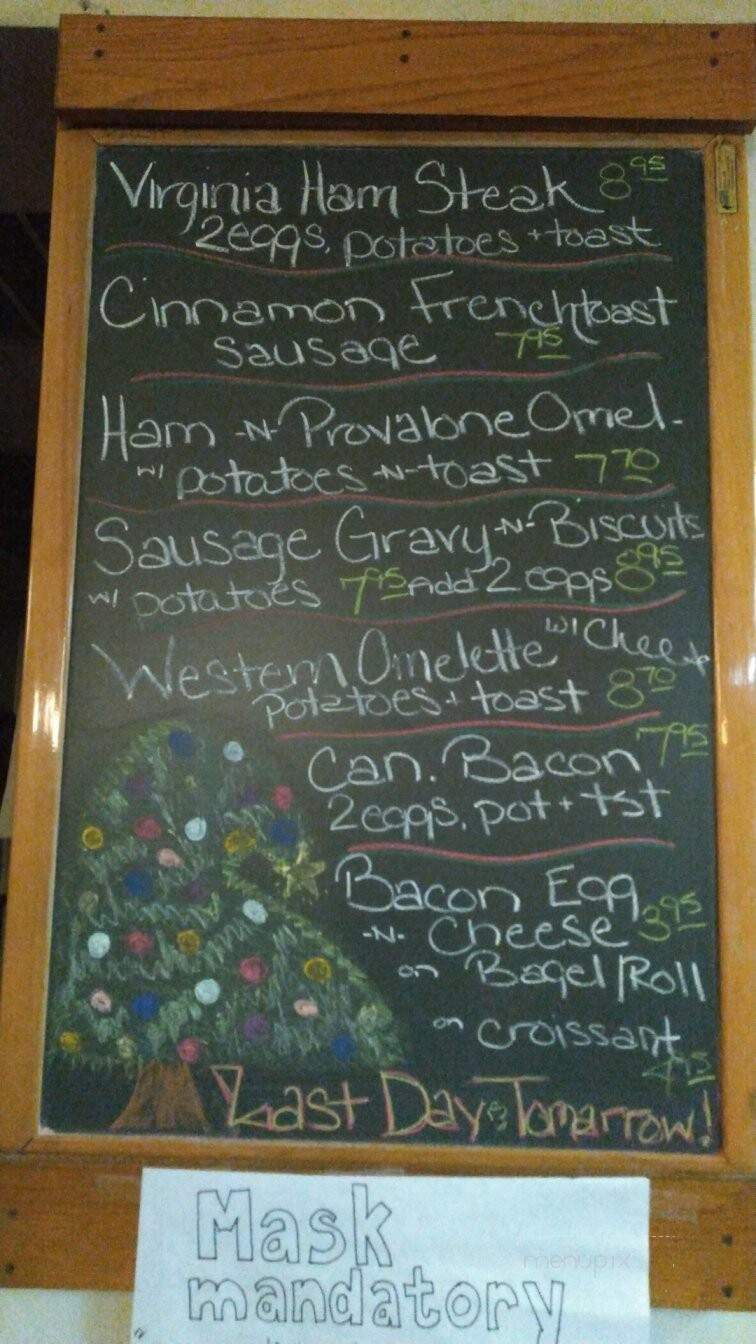 Virginia Ham Steak 8 95
2 eggs, potatoes + toast
Cinnamon Frenchtoast
Sausage 7 95
Ham -N- Provalone Omel-
w/ potatoes -N- toast 7 70
Sausage Gravy -N- Biscuits
w/ potatoes 7 95 Add 2 eggs 8 95
Western Omelette w/ Cheese
potatoes + toast 8 70
Can. Bacon 7 95
2 eggs, pot + tst
Bacon Egg
-N- Cheese 3 95
on Bagel/Roll
on croissant
4 95
Last Day Tomarrow!
Mask
mandatory
menupix